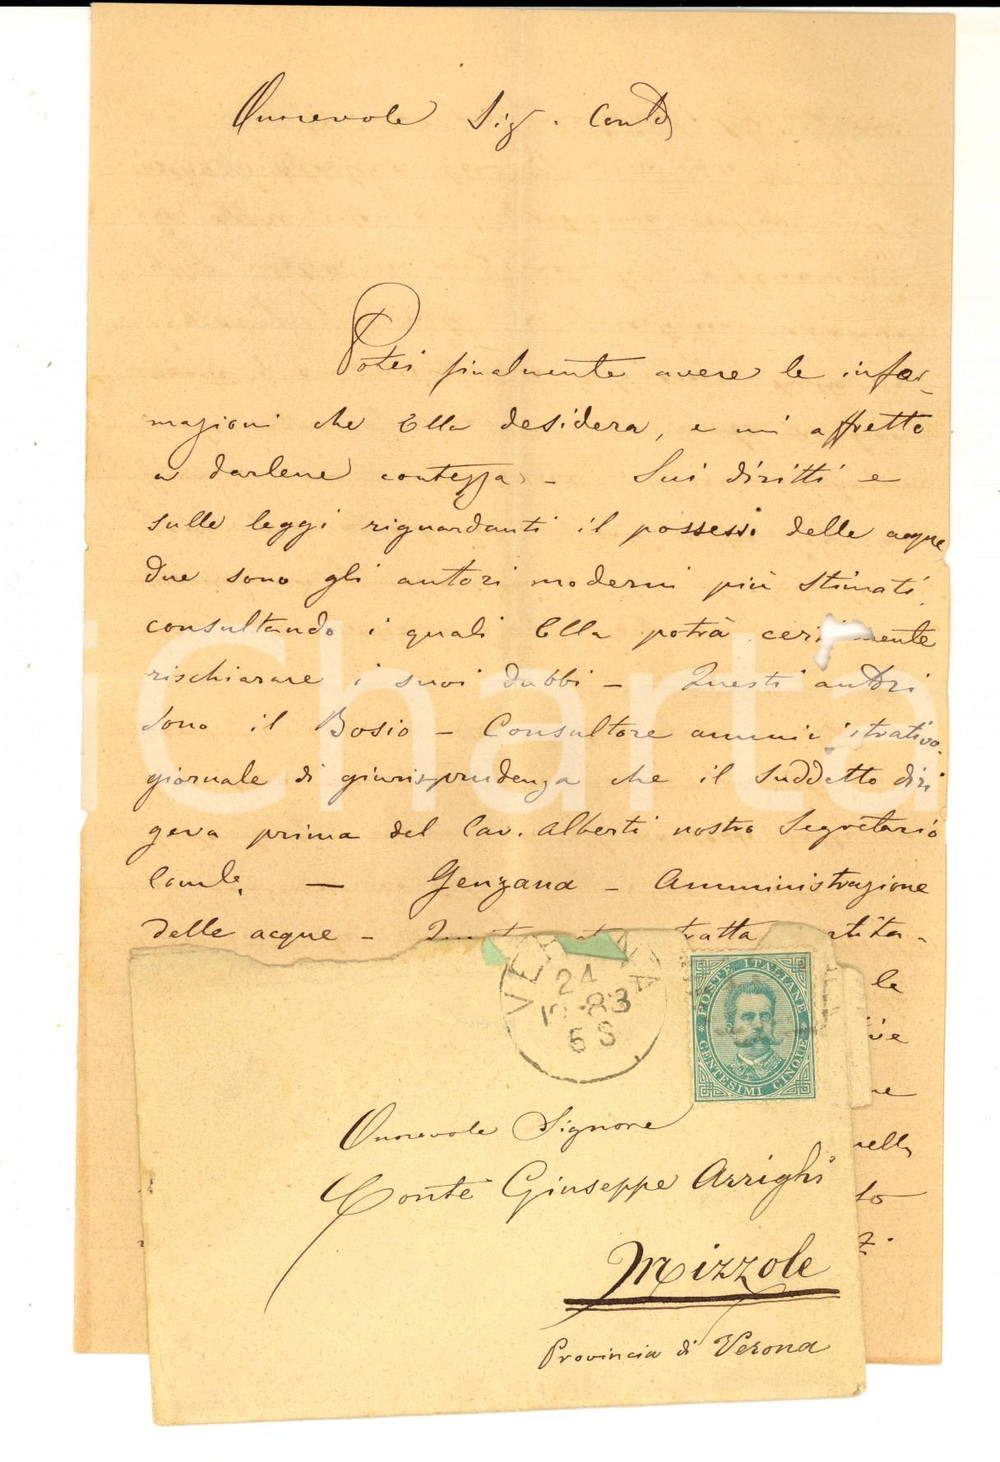 Onorevole Sig. Conte
Potei finalmente avere le infor-
mazioni che Ella desidera, e mi affretto
a darlene contezza. - Sui diritti e
sulle leggi riguardanti il possessi delle acque
due sono gli autori moderni più stimati,
consultando i quali Ella potrà cer mente
rischiarare i suoi dubbi - Questi autori
sono il Bosio - Consultore ammini strativo.
giornale di giurisprudenza che il suddetto diri
geva prima del Cav. Alberti nostro Segretario
Comle. - Genzana - Amministrazione
delle acque - tratta
le
ne
nella
to
VERONA
24
12-83
5 S
POSTE ITALIANE
CENTESIMI CINQUE
Onorevole Signore
Conte Giuseppe Arrighi
Mizzole
Provincia di Verona
iCharta